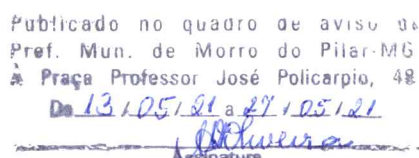 Publicado no quadro de aviso da
Pref. Mun. de Morro do Pilar-MG
À Praça Professor José Policarpio, 48
De 13 / 05 / 21 a 27 / 05 / 21
Oliveira
Assinatura